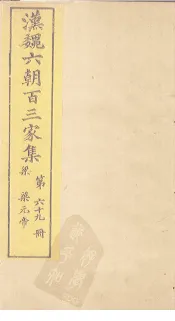 漢魏六朝百三家集
梁
第六十九冊
梁元帝